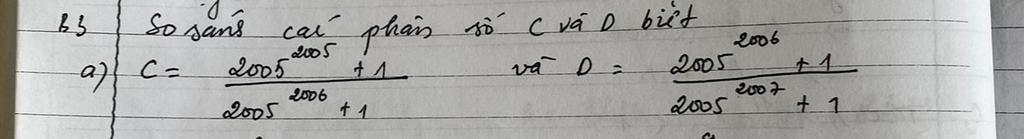 B3 So sánh các phân số C và D biết
a) C = \frac{2005^{2005} + 1}{2005^{2006} + 1} và D = \frac{2005^{2006} + 1}{2005^{2007} + 1}